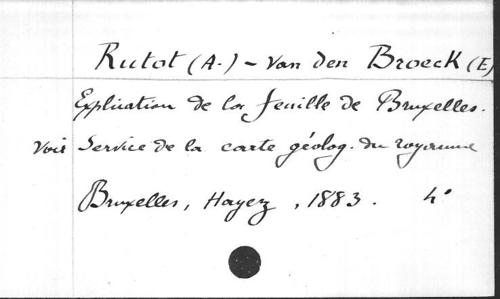 Rutot (A.) – Van den Broeck (E)
Explication de la feuille de Bruxelles.
Voir Service de la carte géolog. du royaume
Bruxelles, Hayez, 1883. 4°